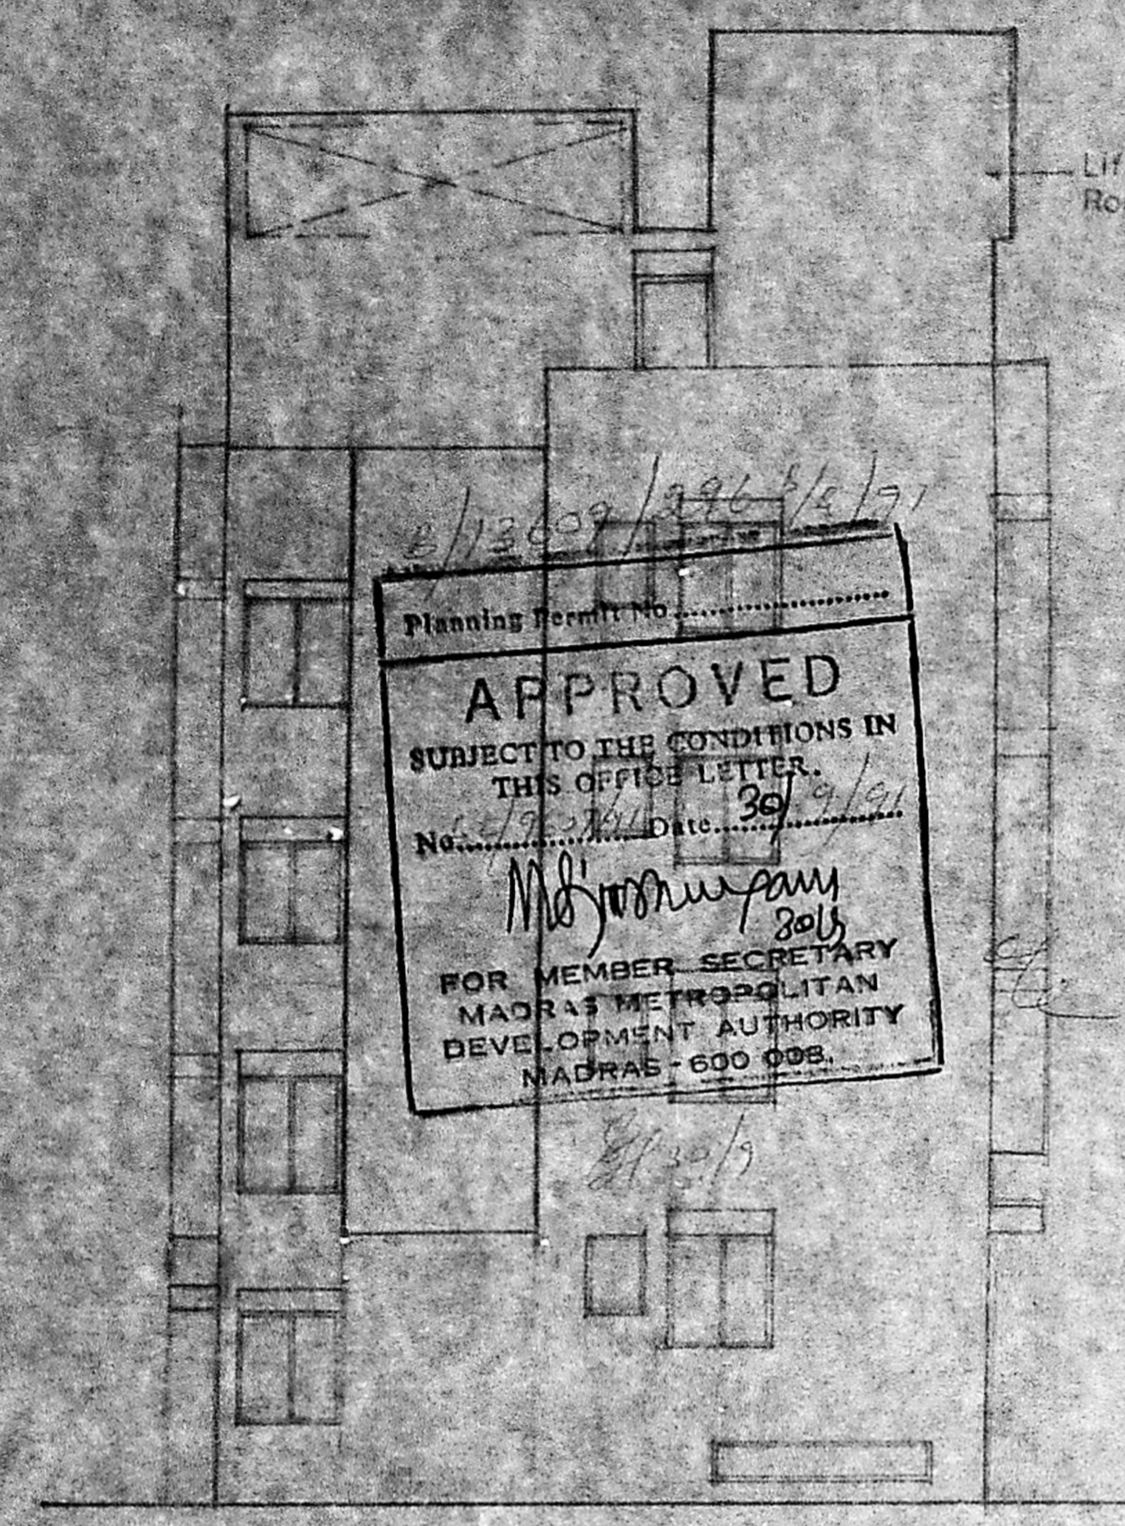 Lif
Ro
B/13609/296
/91
Planning Permit No
APPROVED
SUBJECT TO THE CONDITIONS IN
THIS OFFICE LETTER.
No. Date 30/9/91
FOR MEMBER SECRETARY
MADRAS METROPOLITAN
DEVELOPMENT AUTHORITY
MADRAS - 600 008.
30/9